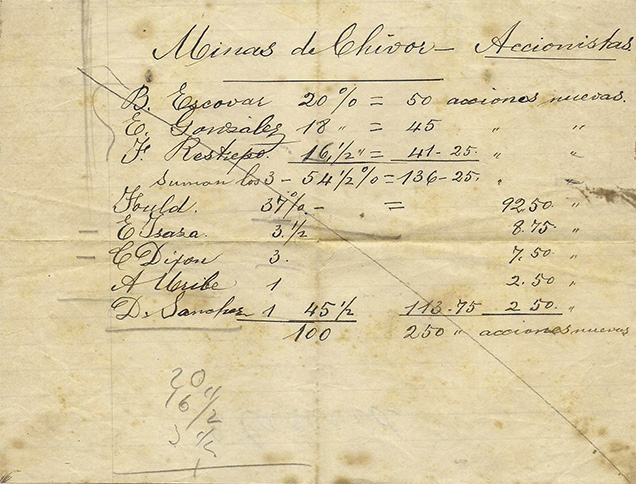 Minas de Chivor — Accionistas
B. Escovar 20 % = 50 acciones nuevas.
E. González 18 " = 45 " "
F. Restrepo. 16,1/2 " = 41-25. " "
Suman los 3 - 54 1/2 % = 136-25. " "
Fould. 37 % - = 92.50 "
E Isaza 3.1/2 8.75 "
C Dixon 3. 7.50 "
A Uribe 1 2.50 "
D. Sanchez 1 45 1/2 113-75 2 50. "
100 250 " acciones nuevas
20
16 1/2
3 1/2